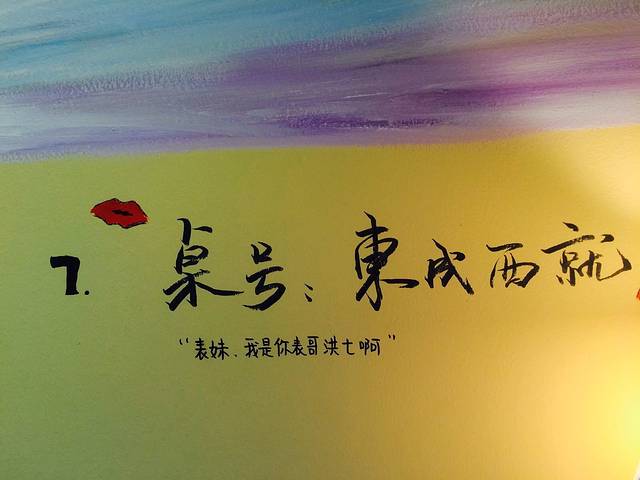 7. 桌号：東成西就
“表妹、我是你表哥洪七啊”